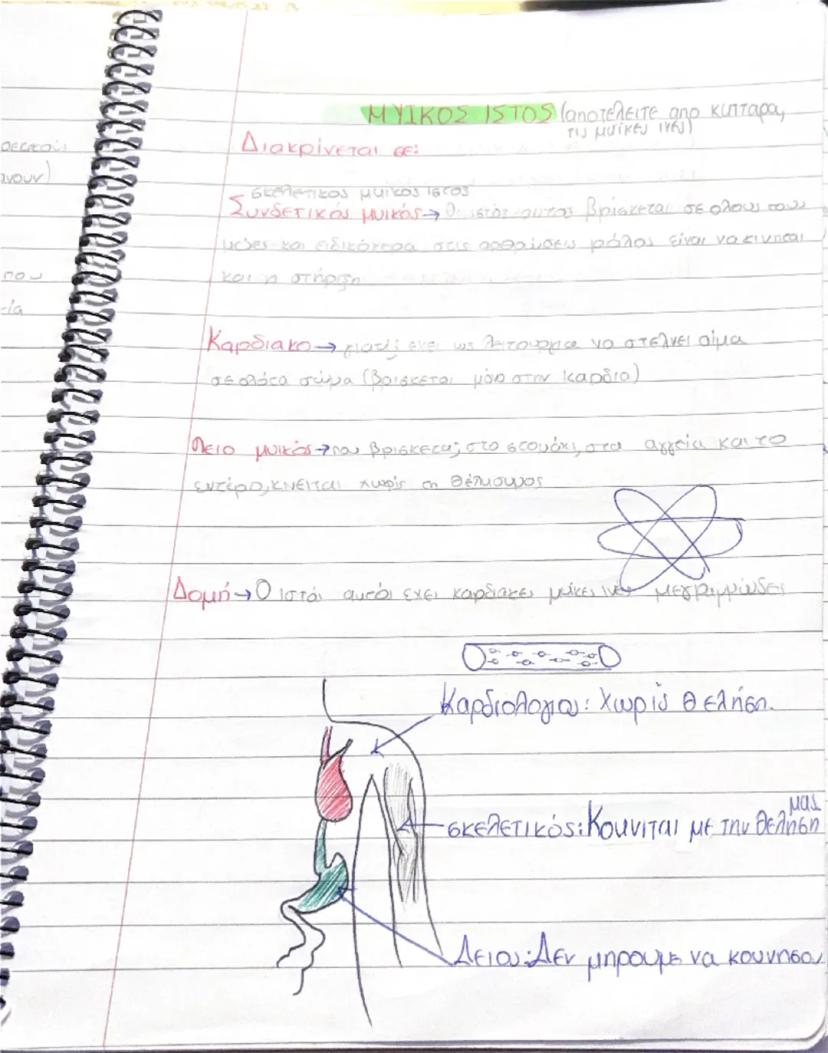 ΜΥΙΚΟΣ ΙΣΤΟΣ (αποτελειτε απο κυτταρα,
τις μυϊκες ινες)
Διακρίνεται σε:
σκελετικος μυικος ιστος
Συνδετικός μυικός → Ο ιστός αυτος βρίσκεται σε ολους τους
και ειδικότερα στις αρθρώσεις ρόλος είναι να κινηται
και η στήριξη
Καρδιακο → γιατί εχει ως λειτουργια να στελνει αίμα
σε ολο το σώμα (βρισκεται μόνο στην καρδια)
Λειο μυικός → που βρισκεται στο στομάχι, στα αγγεία και το
εντέρο, κινειται χωρίς τη θέληση μας
Δομή → Ο ιστός αυτός εχει καρδιακες μυικες ινες
Καρδιολογιου: Χωρίς θελήση.
σκελετικός: Κουνιται με την θελήση
μας
Λειος: Δεν μπρουμε να κουνησου
ρεσκοϊ
νουν)
που
εία